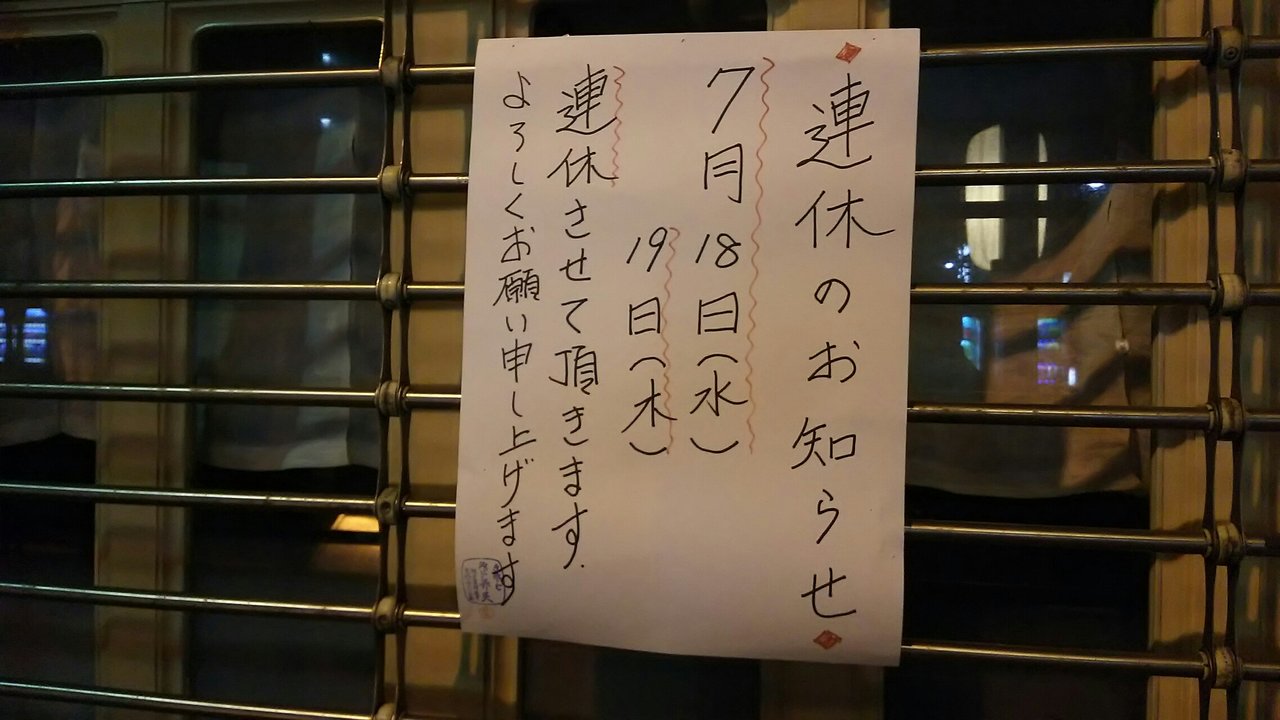 連休のお知らせ
7月18日(水)
19日(木)
連休させて頂きます.
よろしくお願い申し上げます